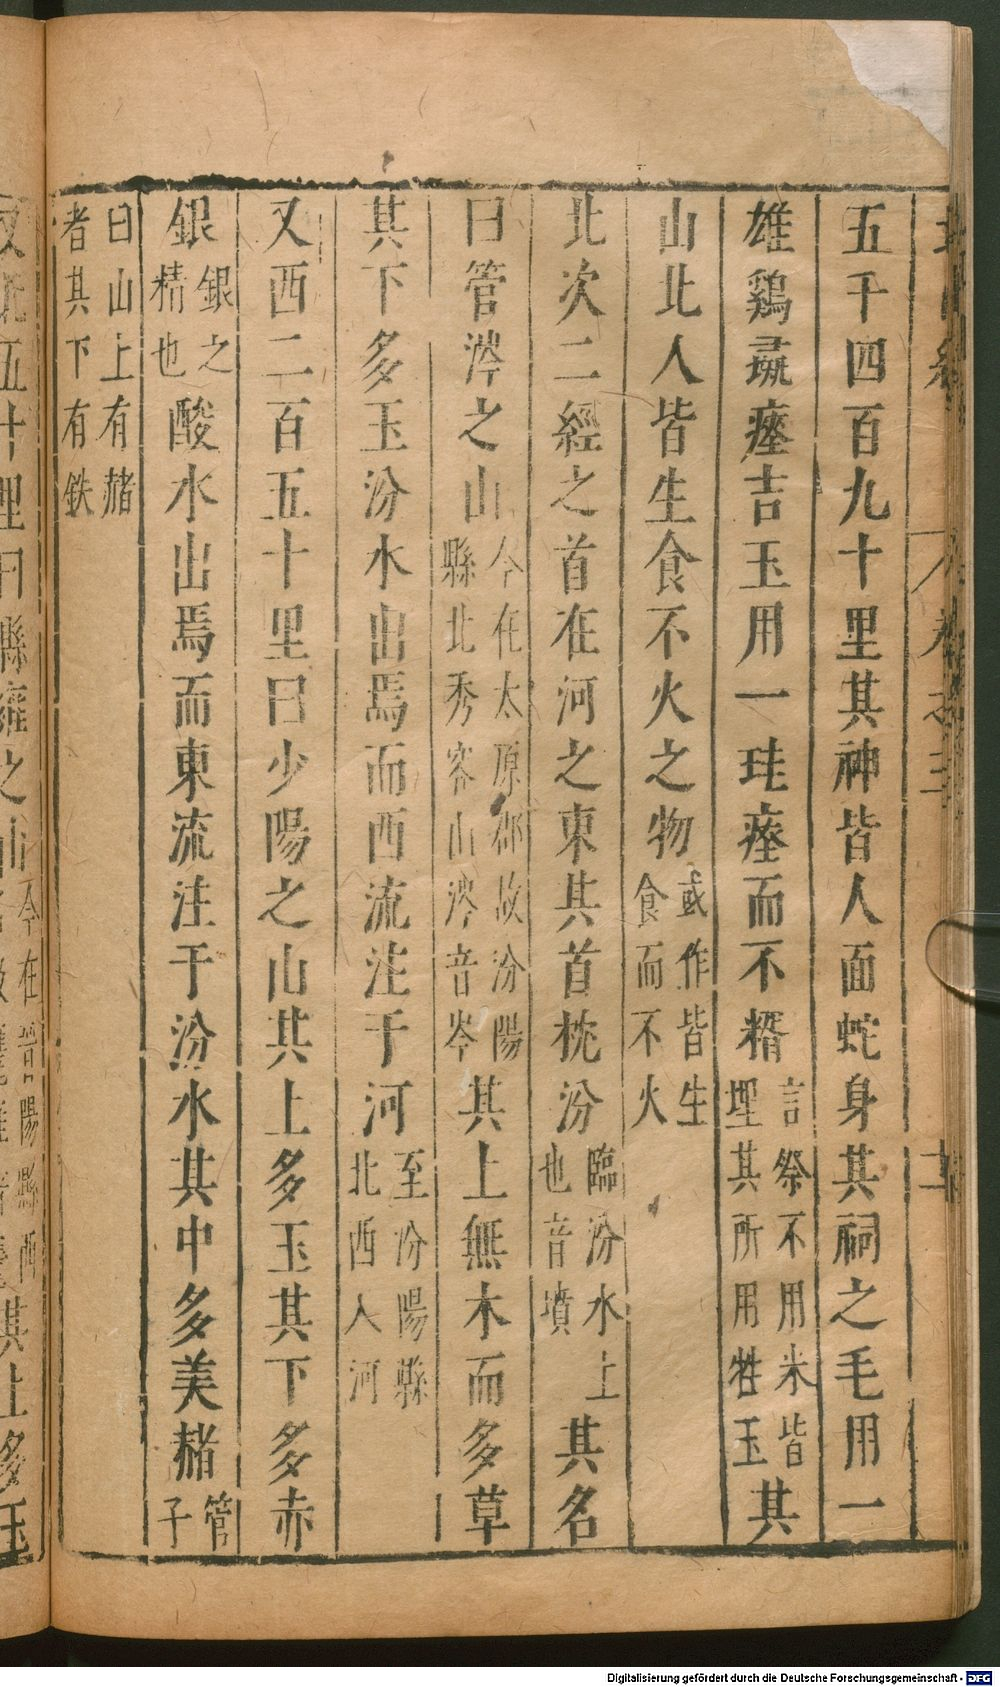 五千四百九十里其神皆人面蛇身其祠之毛用一
雄鷄彘瘞吉玉用一珪瘞而不糈言祭不用米皆埋其所用牲玉其
山北人皆生食不火之物或作皆生食而不火
北次二經之首在河之東其首枕汾臨汾水上也音墳其名
曰管涔之山今在太原郡故汾陽縣北秀容山涔音岑其上無木而多草
其下多玉汾水出焉而西流注于河至汾陽縣北西入河
又西二百五十里曰少陽之山其上多玉其下多赤
銀銀之精也酸水出焉而東流注于汾水其中多美赭管子
曰山上有赭者其下有鉄
又北五十里曰縣雍之山今在晉陽縣西其上多玉
Digitalisierung gefördert durch die Deutsche Forschungsgemeinschaft - DFG